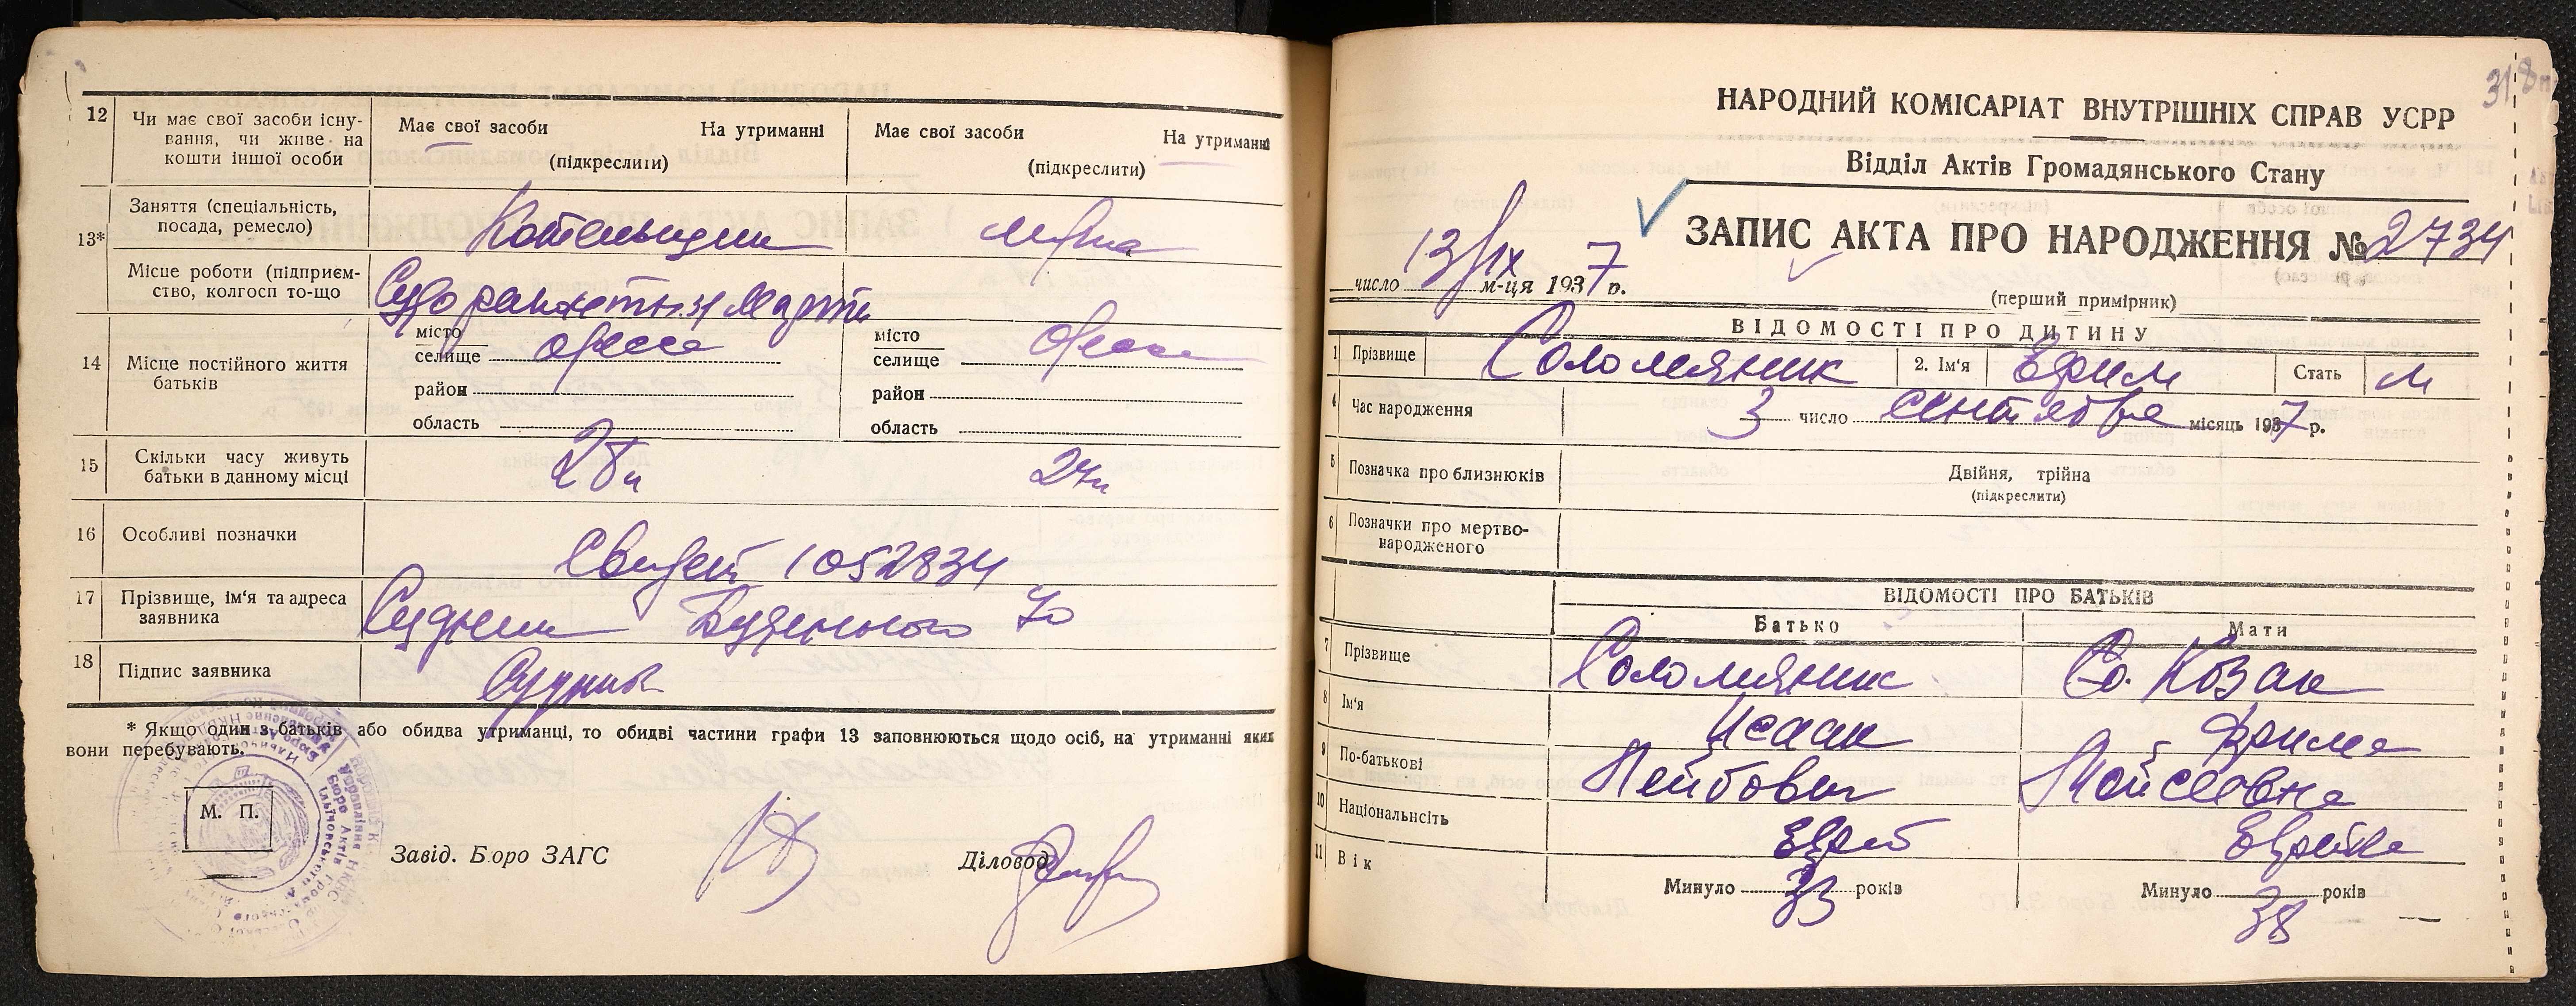 12
Чи має свої засоби існу-
вання, чи живе на
кошти іншої особи
Має свої засоби На утриманні
(підкреслити)
Має свої засоби На утриманні
(підкреслити)
13*
Заняття (спеціальність,
посада, ремесло)
Котельщик
Місце роботи (підприєм-
ство, колгосп то-що
Марти
14
Місце постійного життя
батьків
місто
селище Одесса
район
область
місто
селище Одесса
район
область
15
Скільки часу живуть
батьки в данному місці
24л
16
Особливі позначки
Свидет 1052834
17
Прізвище, ім'я та адреса
заявника
Судник Буденного 70
18
Підпис заявника
Судник
* Якщо один з батьків або обидва утриманці, то обидві частини графи 13 заповнюються щодо осіб, на утриманні яких
вони перебувають.
М. П.
Завід. Бюро ЗАГС
Діловод
318
НАРОДНИЙ КОМІСАРІАТ ВНУТРІШНІХ СПРАВ УСРР
Відділ Актів Громадянського Стану
ЗАПИС АКТА ПРО НАРОДЖЕННЯ № 2734
число 13/IX м-ця 1937 р.
(перший примірник)
ВІДОМОСТІ ПРО ДИТИНУ
1 Прізвище Соломяник 2. Ім'я Ефим Стать М
4 Час народження 3 число сентября місяць 1937 р.
5 Позначка про близнюків Двійня, трійна
(підкреслити)
6 Позначки про мертво-
народженого
ВІДОМОСТІ ПРО БАТЬКІВ
Батько Мати
7 Прізвище Соломяник Со. Козак
8 Ім'я Исаак Фрима
9 По-батькові Лейбович Мойсеевна
10 Національність Еврей Еврейка
11 Вік Минуло 33 років Минуло 38 років